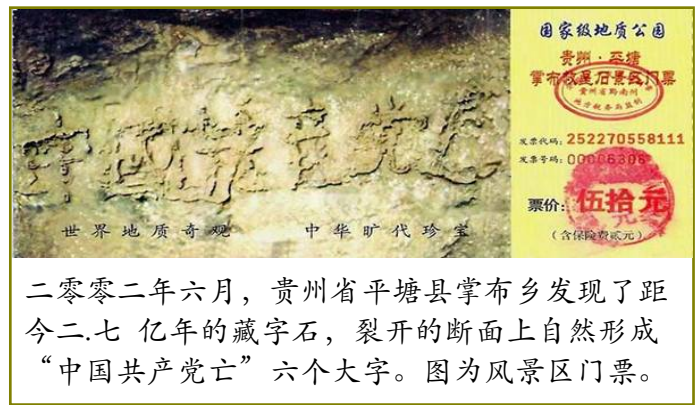 中國共産党亡
世界地质奇观 中华旷代珍宝
国家级地质公园
贵州·平塘
掌布救星石景区门票
贵州省黔南州
地方税务局监制
发票代码: 252270558111
发票号码: 00006306
票价: 伍拾元
(含保险费贰元)
二零零二年六月，贵州省平塘县掌布乡发现了距
今二.七 亿年的藏字石，裂开的断面上自然形成
“中国共产党亡”六个大字。图为风景区门票。